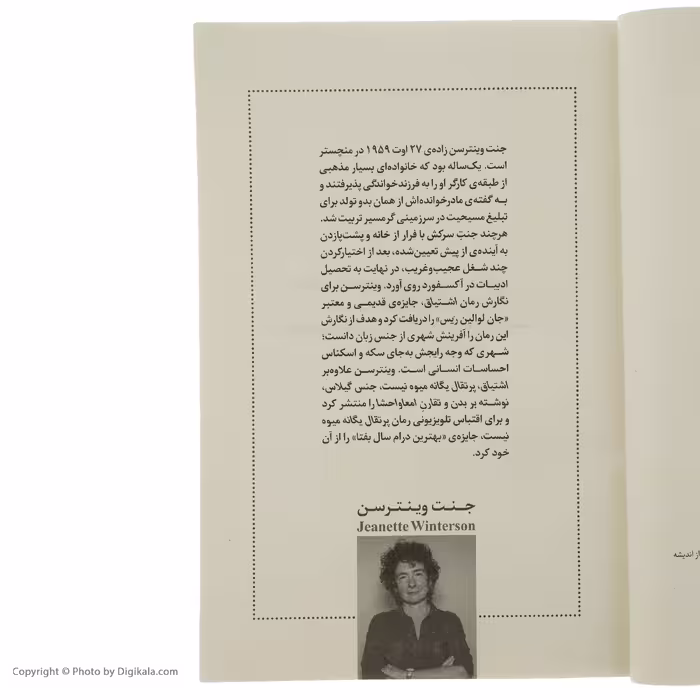 جنت وینترسن زاده‌ی ۲۷ اوت ۱۹۵۹ در منچستر
است. یک‌ساله بود که خانواده‌ای بسیار مذهبی
از طبقه‌ی کارگر او را به فرزندخواندگی پذیرفتند و
به گفته‌ی مادرخوانده‌اش از همان بدو تولد برای
تبلیغ مسیحیت در سرزمینی گرمسیر تربیت شد.
هرچند جنتِ سرکش با فرار از خانه و پشت‌پازدن
به آینده‌ی از پیش تعیین‌شده، بعد از اختیارکردن
چند شغل عجیب‌وغریب، در نهایت به تحصیل
ادبیات در آکسفورد روی آورد. وینترسن برای
نگارش رمان اشتیاق، جایزه‌ی قدیمی و معتبر
«جان لوالین ریس» را دریافت کرد و هدف از نگارش
این رمان را آفرینش شهری از جنس زبان دانست؛
شهری که وجه رایجش به‌جای سکه و اسکناس
احساسات انسانی است. وینترسن علاوه‌بر
اشتیاق، پرتقال یگانه میوه نیست، جنس گیلاس،
نوشته بر بدن و تقارنِ امعاواحشا را منتشر کرد
و برای اقتباس تلویزیونی رمان پرتقال یگانه میوه
نیست، جایزه‌ی «بهترین درام سال بفتا» را از آن
خود کرد.
جنت وینترسن
Jeanette Winterson
از اندیشه
Copyright © Photo by Digikala.com